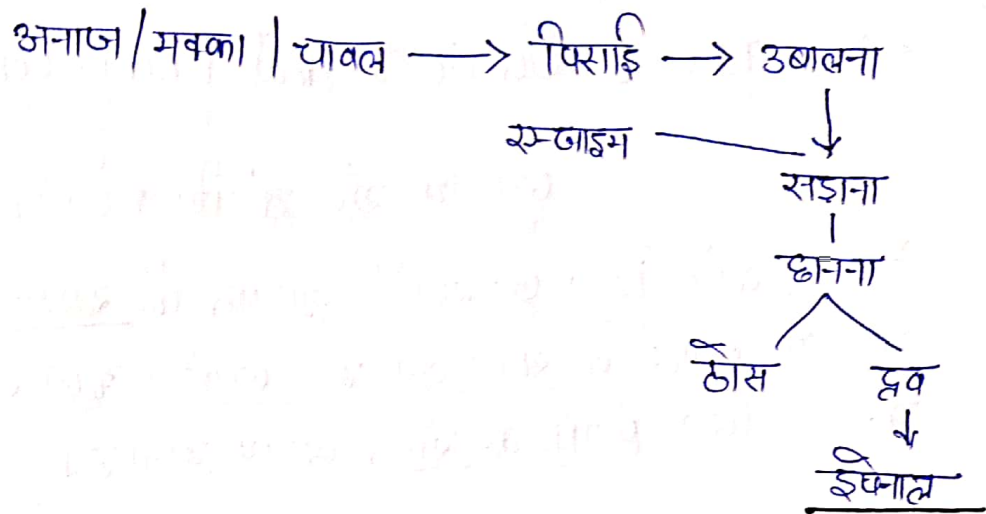 अनाज / मक्का / चावल → पिसाई → उबालना
एन्जाइम
सड़ाना
छानना
ठोस द्रव
इथेनाल